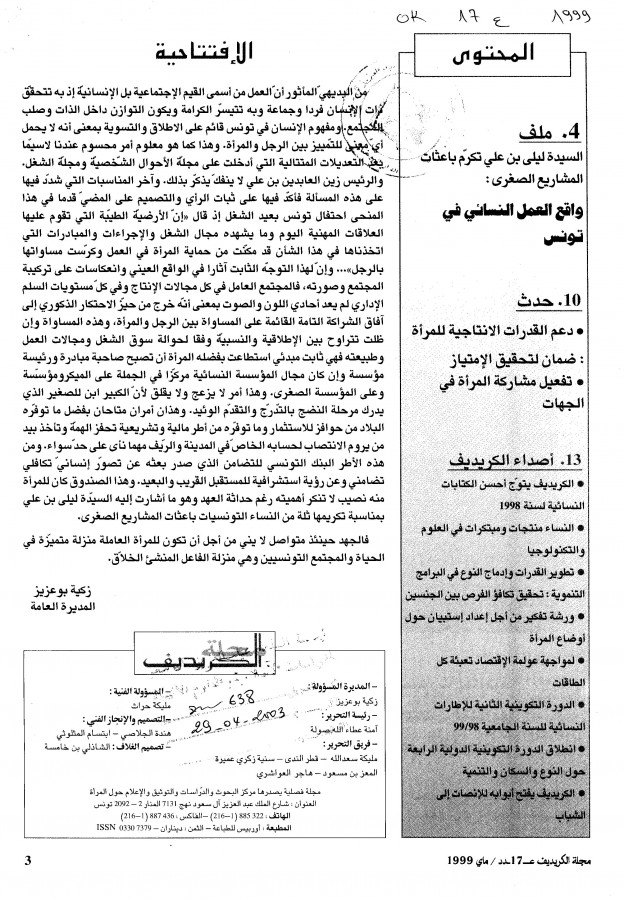 OK 17 ع 1999
الإفتتاحية
من البديهي المأثور أن العمل من أسمى القيم الإجتماعية بل الإنسانية إذ به تتحقق
ذات الإنسان فردا وجماعة وبه تتيسر الكرامة ويكون التوازن داخل الذات وصلب
المجتمع. ومفهوم الإنسان في تونس قائم على الاطلاق والتسوية بمعنى أنه لا يحمل
أي معنى للتمييز بين الرجل والمرأة. وهذا كما هو معلوم أمر محسوم عندنا لاسيما
بعد التعديلات المتتالية التي أدخلت على مجلة الأحوال الشخصية ومجلة الشغل.
والرئيس زين العابدين بن علي لا ينفك يذكر بذلك. وآخر المناسبات التي شدد فيها
على هذه المسألة فأكد فيها على ثبات الرأي والتصميم على المضي قدما في هذا
المنحى احتفال تونس بعيد الشغل إذ قال «إن الأرضية الطيبة التي تقوم عليها
العلاقات المهنية اليوم وما يشهده مجال الشغل والإجراءات والمبادرات التي
اتخذناها في هذا الشأن قد مكنت من حماية المرأة في العمل وكرست مساواتها
بالرجل»... وإن لهذا التوجه الثابت آثارا في الواقع العيني وانعكاسات على تركيبة
المجتمع وصورته، فالمجتمع العامل في كل مجالات الإنتاج وفي كل مستويات السلم
الإداري لم يعد أحادي اللون والصوت بمعنى أنه خرج من حيز الاحتكار الذكوري إلى
آفاق الشراكة التامة القائمة على المساواة بين الرجل والمرأة، وهذه المساواة وإن
ظلت تتراوح بين الإطلاقية والنسبية وفقا لحوالة سوق الشغل ومجالات العمل
وطبيعته فهي ثابت مبدئي استطاعت بفضله المرأة أن تصبح صاحبة مبادرة ورئيسة
مؤسسة وإن كان مجال المؤسسة النسائية مركزا في الجملة على الميكرومؤسسة
وعلى المؤسسة الصغرى. وهذا أمر لا يزعج ولا يقلق لأن الكبير ابن للصغير الذي
يدرك مرحلة النضج بالتدرج والتقدم الوئيد. وهذان أمران متاحان بفضل ما توفره
البلاد من حوافز للاستثمار وما توفره من أطر مالية وتشريعية تحفز الهمة وتأخذ بيد
من يروم الانتصاب لحسابه الخاص في المدينة والريف مهما نأى على حد سواء. ومن
هذه الأطر البنك التونسي للتضامن الذي صدر بعثه عن تصور إنساني تكافلي
تضامني وعن رؤية استشرافية للمستقبل القريب والبعيد. وهذا الصندوق كان للمرأة
منه نصيب لا تنكر أهميته رغم حداثة العهد وهو ما أشارت إليه السيدة ليلى بن علي
بمناسبة تكريمها ثلة من النساء التونسيات باعثات المشاريع الصغرى.
فالجهد حينئذ متواصل لا يني من أجل أن تكون للمرأة العاملة منزلة متميزة في
الحياة والمجتمع التونسيين وهي منزلة الفاعل المنشئ الخلاق.
زكية بوعزيز
المديرة العامة
المحتوى
4. ملف
السيدة ليلى بن علي تكرّم باعثات
المشاريع الصغرى :
واقع العمل النسائي في
تونس
10. حدث
● دعم القدرات الانتاجية للمرأة
: ضمان لتحقيق الإمتياز
● تفعيل مشاركة المرأة في
الجهات
13. أصداء الكريديف
● الكريديف يتوّج أحسن الكتابات
النسائية لسنة 1998
● النساء منتجات ومبتكرات في العلوم
والتكنولوجيا
● تطوير القدرات وإدماج النوع في البرامج
التنموية : تحقيق تكافؤ الفرص بين الجنسين
● ورشة تفكير من أجل إعداد إستبيان حول
أوضاع المرأة
● لمواجهة عولمة الإقتصاد تعبئة كل
الطاقات
● الدورة التكوينية الثانية للإطارات
النسائية للسنة الجامعية 99/98
● انطلاق الدورة التكوينية الدولية الرابعة
حول النوع والسكان والتنمية
● الكريديف يفتح أبوابه للإنصات إلى
الشباب
مجلة
الكريديف
– المديرة المسؤولة :
زكية بوعزيز
– رئيسة التحرير :
آمنة عطاء الله صولة
– فريق التحرير :
مليكة سعدالله – قطر الندى – سنية زكري عميرة
المعز بن مسعود – هاجر العواشري
– المسؤولة الفنية :
مليكة حراث
– التصميم والإنجاز الفني :
هندة الجلاصي – ابتسام المثلوثي
– تصميم الغلاف : الشاذلي بن خامسة
638
29-04-2003
مجلة فصلية يصدرها مركز البحوث والدراسات والتوثيق والإعلام حول المرأة
العنوان : شارع الملك عبد العزيز آل سعود نهج 7131 المنار 2 – 2092 تونس
الهاتف : 885 322 (1–216) –الفاكس : 887 436 (1–216)
المطبعة : أوربيس للطباعة – الثمن : ديناران – ISSN 0330 7379
مجلة الكريديف عــ17ــدد / ماي 1999
3